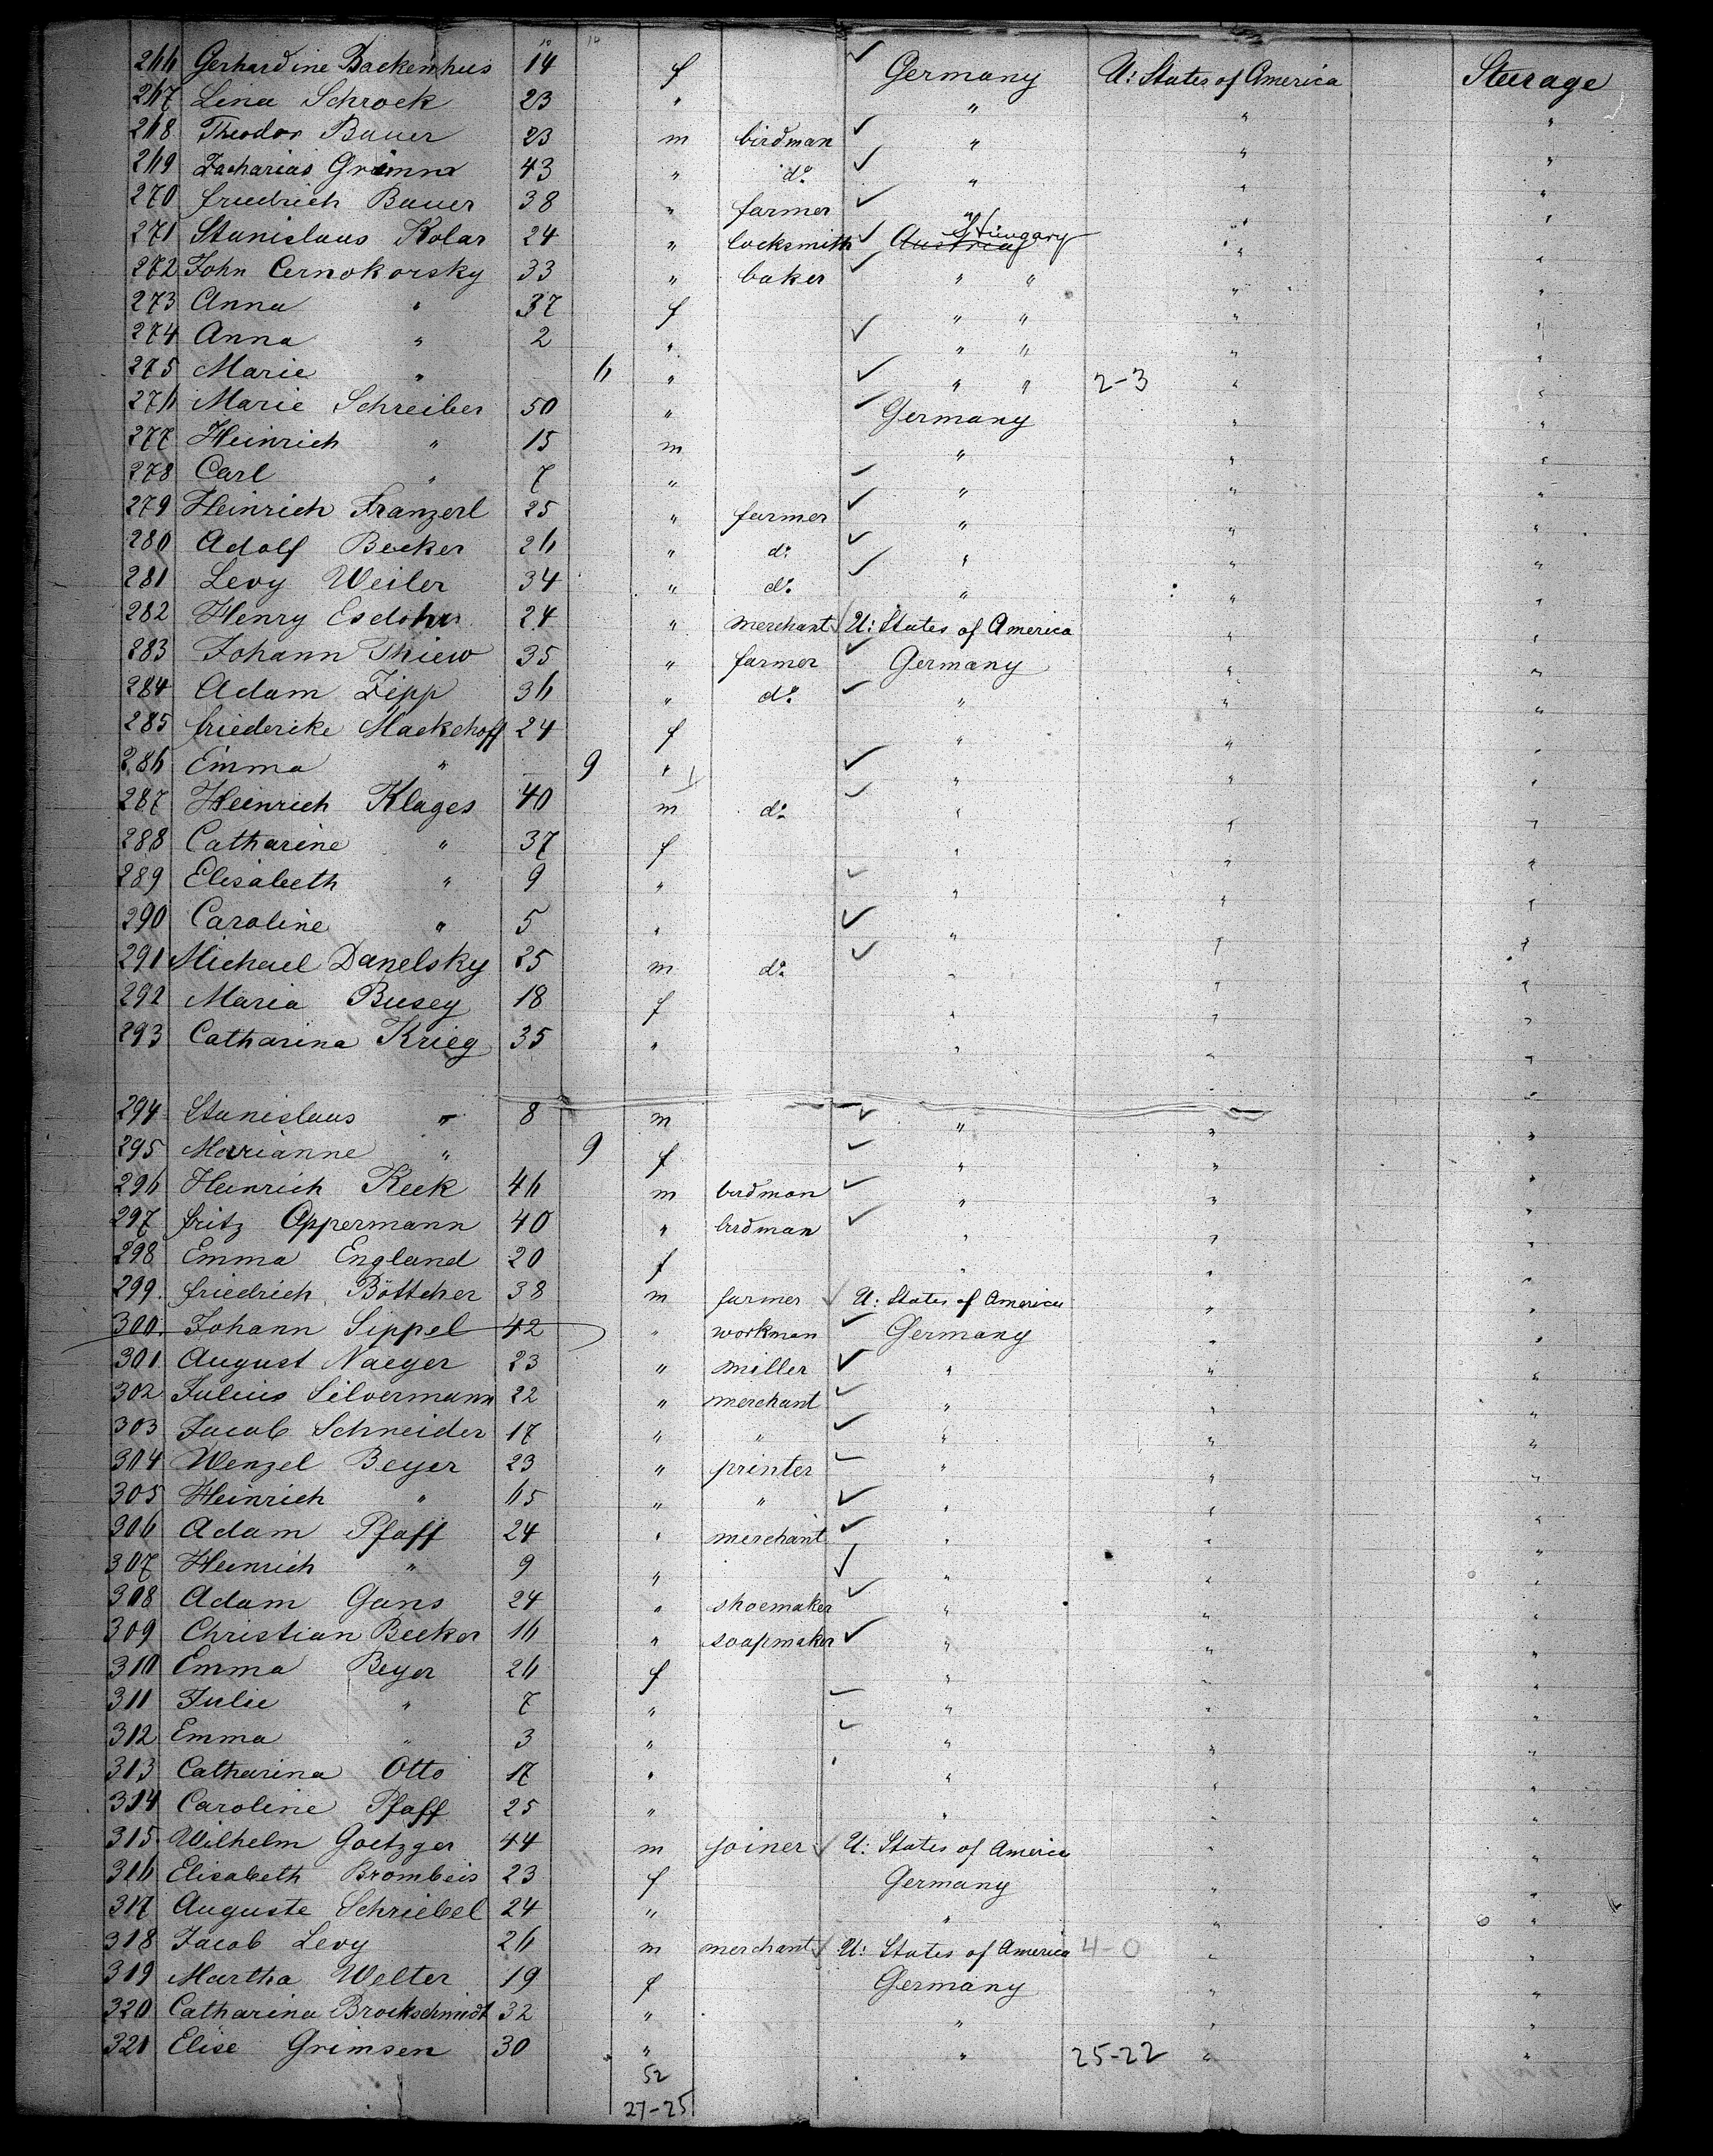 266 Gerhardine Backenhus 14 f Germany U: States of America Steerage
267 Lena Schroek 23 " " " "
268 Theodor Bauer 23 m birdman " " "
269 Zacharias Grimm 43 " do. " " "
270 friedrich Bauer 38 " farmer " " "
271 Stanislaus Kolar 24 " locksmith Austria Hungary " "
272 John Cernokorsky 33 " baker " " " "
273 Anna " 37 f " " " "
274 Anna " 2 " " " " "
275 Marie " 6 " " " 2-3 " "
276 Marie Schreiber 50 " Germany " "
277 Heinrich " 15 m " " "
278 Carl " 7 " " " "
279 Heinrich Franzerl 25 " farmer " " "
280 Adolf Becker 26 " do. " " "
281 Levy Weiler 34 " do. " " "
282 Henry 24 " merchant U: States of America " "
283 Johann Thiew 35 " farmer Germany " "
284 Adam Zipp 36 " do. " " "
285 friederike Mackehoff 24 f " " "
286 Emma " 9 " " " "
287 Heinrich Klages 40 m do. " " "
288 Catharine " 37 f " " "
289 Elisabeth " 9 " " " "
290 Caroline " 5 " " " "
291 Michael Danelsky 25 m do. " " "
292 Maria Busey 18 f " " "
293 Catharina Krieg 35 " " " "
294 Stanislaus " 8 m " " "
295 Marianne " 9 f " " "
296 Heinrich Keek 46 m birdman " " "
297 fritz Oppermann 40 " birdman " " "
298 Emma England 20 f " " "
299. friedrich Böttcher 38 m farmer U: States of America " "
300. Johann Sippel 42 " workman Germany " "
301. August Naeger 23 " miller " " "
302 Julius Silvermann 22 " merchant " " "
303 Jacob Schneider 17 " " " " "
304 Wenzel Beyer 23 " printer " " "
305 Heinrich " 65 " " " " "
306 Adam Pfaff 24 " merchant " " "
307 Heinrich " 9 " " " "
308 Adam Gans 24 " shoemaker " " "
309 Christian Becker 16 " soapmaker " " "
310 Emma Beyer 26 f " " "
311 Julie " 7 " " " "
312 Emma " 3 " " " "
313 Catharina Otto 17 " " " "
314 Caroline Pfaff 25 " " " "
315. Wilhelm Goetzger 44 m joiner U: States of America " "
316 Elisabeth Brombeis 23 f Germany " "
317 Auguste Schriebel 24 " " " "
318 Jacob Levy 26 m merchant U: States of America 4-0 " "
319 Martha Welter 19 f Germany " "
320 Catharina Brockschmidt 32 " " " "
321 Elise Grimsen 30 " " 25-22 " "
52
27-25